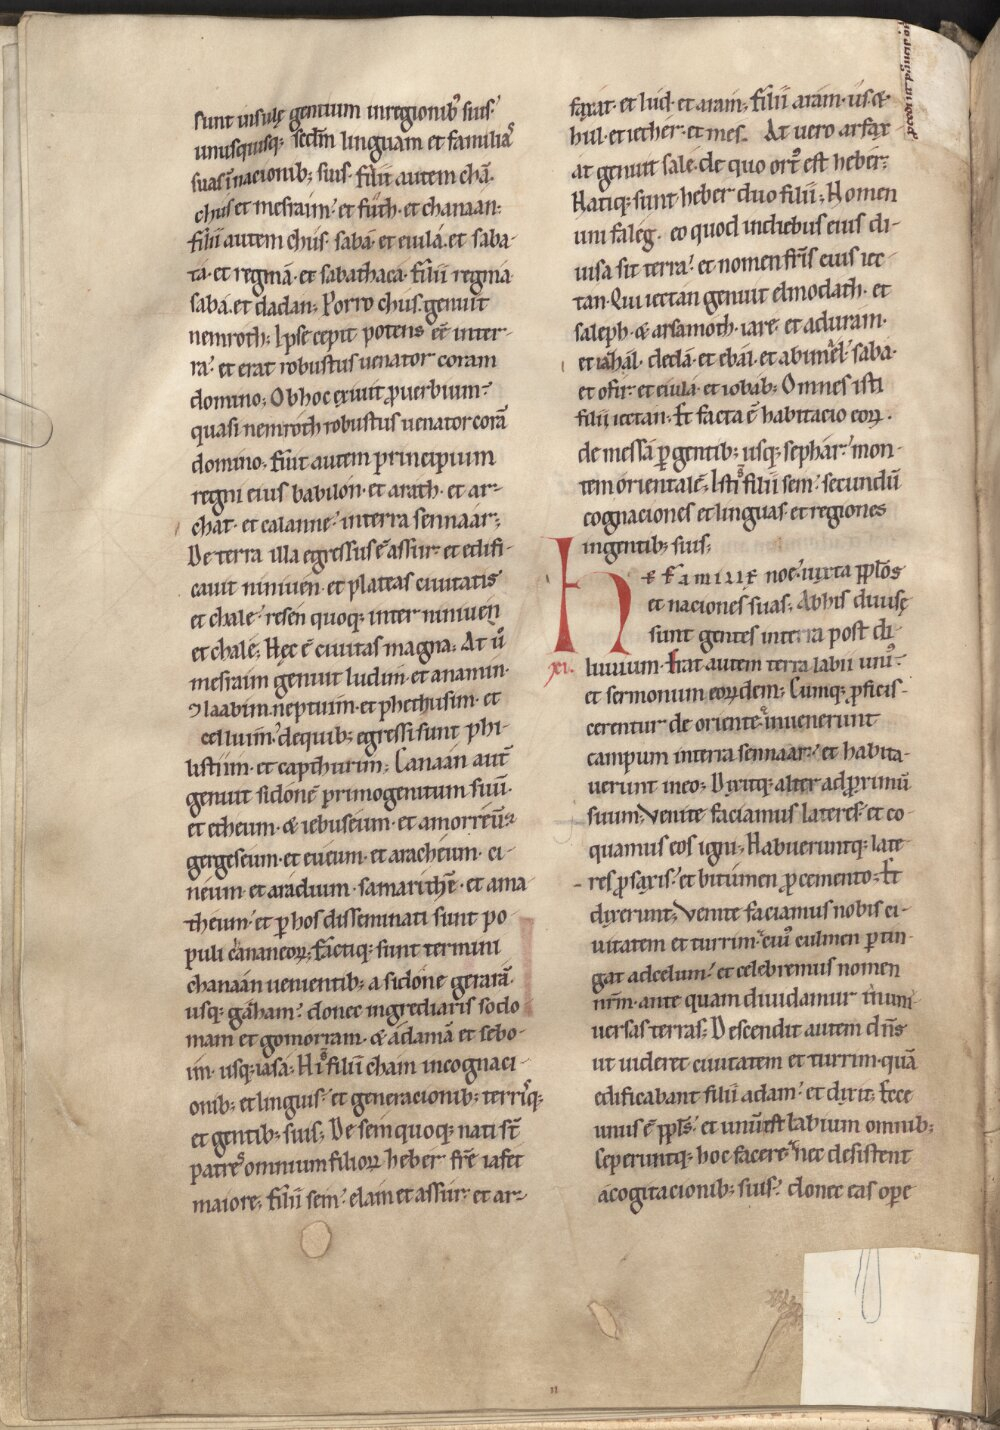 sunt insulę gentium inregionib᷒ suis᷒
unusquisq; scđm linguam et familia᷒
suas ı̄nacionib; suis· filii autem chā·
chus et mesraim᷒ et futh· et chanaan:
filii autem chus· saba· et euila· et saba-
ta· et regmā· et sabathaca· filii regma
saba· et dadan; Porro chus genuit
nemroth; Ipse cepit potens eē inter-
ra᷒ et erat robustus uenator coram
domino; Ob hoc exiuit ꝓuerbium᷒
quasi nemroth robustus uenator corā
domino; fuit autem principium
regni eius babilon· et arath· et ar-
chat· et calanne᷒ interra sennaar;
De terra illa egressus ē assur· et edifi-
cauit niniuen· et plateas ciuitatis
et chale᷒ resen quoq; inter niniuen
et chale; Hęc ē ciuitas magna; At u᷒o
mesraim genuit ludim· et anamin·
ꝛ laabim neptuim· et phethusim· et
celluim᷒ dequib; egressi sunt phi-
listiim· et capthurim; Canaan aut̄
genuit sidonē primogenitum suū·
et etheum· & iebuseum· et amorreū·
gergeseum· et eueum· et aracheum· ci-
neum· et aradium· samarithē· et ama
theum᷒ et ꝑ hos disseminati sunt po-
puli cananeoꝝ; factiq; sunt termini
chanaan uenientib; a sidone gerarā·
usq; gaham᷒ donec ingrediaris sodo
mam et gomorram· & adamā et sebo-
im· usq; iasa; Hi filii cham incognaci-
onib; et linguis᷒ et generacionib; terrisq;
et gentib; suis; De sem quoq; nati sт̄
patre omnium filioꝝ heber fr̄e iafet
maiore; filii sem᷒ elam et assur· et ar-
faxat· et lud· et aram; filii aram· us &·
hul· et iether· et mes· At uero arfax
at genuit sale· de quo ort᷒ est heber;
Natiq; sunt heber duo filii; Nomen
uni faleg· eo quod indiebus eius di-
uisa sit terra᷒ et nomen fr̄is eius iec-
tan· Qui iectan genuit elmodath· et
saleph· & arsamoth· iare· et aduram·
et iahal· dedā· et ebal· et abimel᷒ saba·
et ofir· et euila· et iobab; Omnes isti
filii iectan· Et facta ē habitacio eoꝝ·
de messā ꝑgentib; usq; sephar᷒ mon-
tem orientalē; Isti filii sem᷒ secundū
cognaciones et linguas· et regiones
ingentib; suis;
HE FAMILIE noe᷒ iuxta ppl̄os
et naciones suas; Abhis diuisę
sunt gentes interra post di-
xi. luuium· Erat autem terra labii uni᷒·
et sermonum eoꝝdem; Cumq; ꝓficis-
cerentur de oriente᷒ inuenerunt
campum interra sennaar᷒ et habita-
uerunt ineo; Dixitq; alter ad ꝓximū
suum; Venite faciamus lateres᷒ et co-
quamus eos igni; Habueruntq; late
res ꝓ saxis᷒ et bitumen ꝓ cemento; Et
dixerunt; Venite faciamus nobis ci-
uitatem et turrim᷒ cui᷒ culmen ꝑtin-
gat adcelum᷒ et celebremus nomen
nr̄m· ante quam diuidamur inuni-
uersas terras; Descendit autem dn̄s·
ut uideret ciuitatem et turrim· quā
edificabant filii adam᷒ et dixit; Ecce
unus ē ppl̄s᷒ et unū est labium omnib;
Ceperuntq; hoc facere᷒ nec desistent
acogitacionib; suis᷒ donec eas ope
II